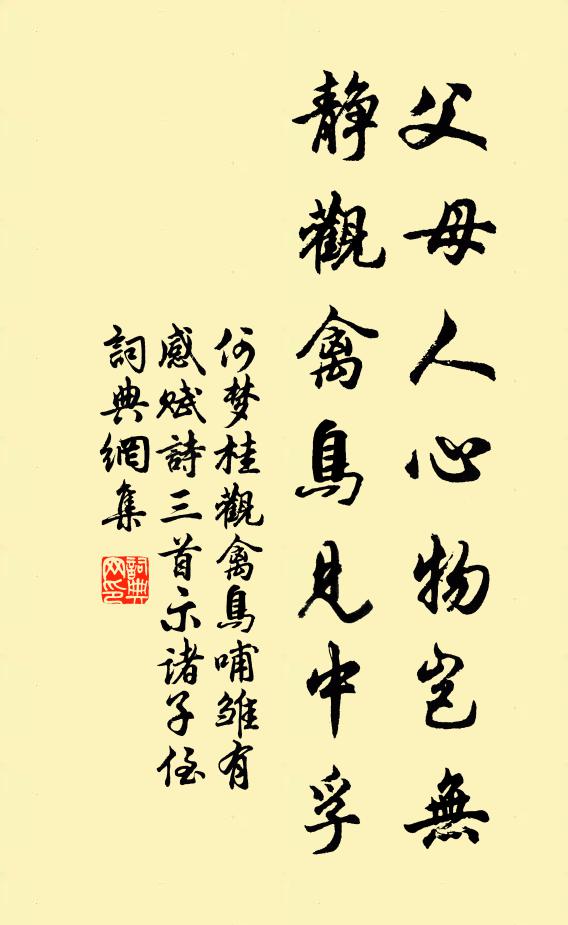 父母人心物岂無
靜觀禽鳥見中孚
何梦桂觀禽鳥哺雏有
感赋詩三首示诸子侄
詞典網集
詞典网印